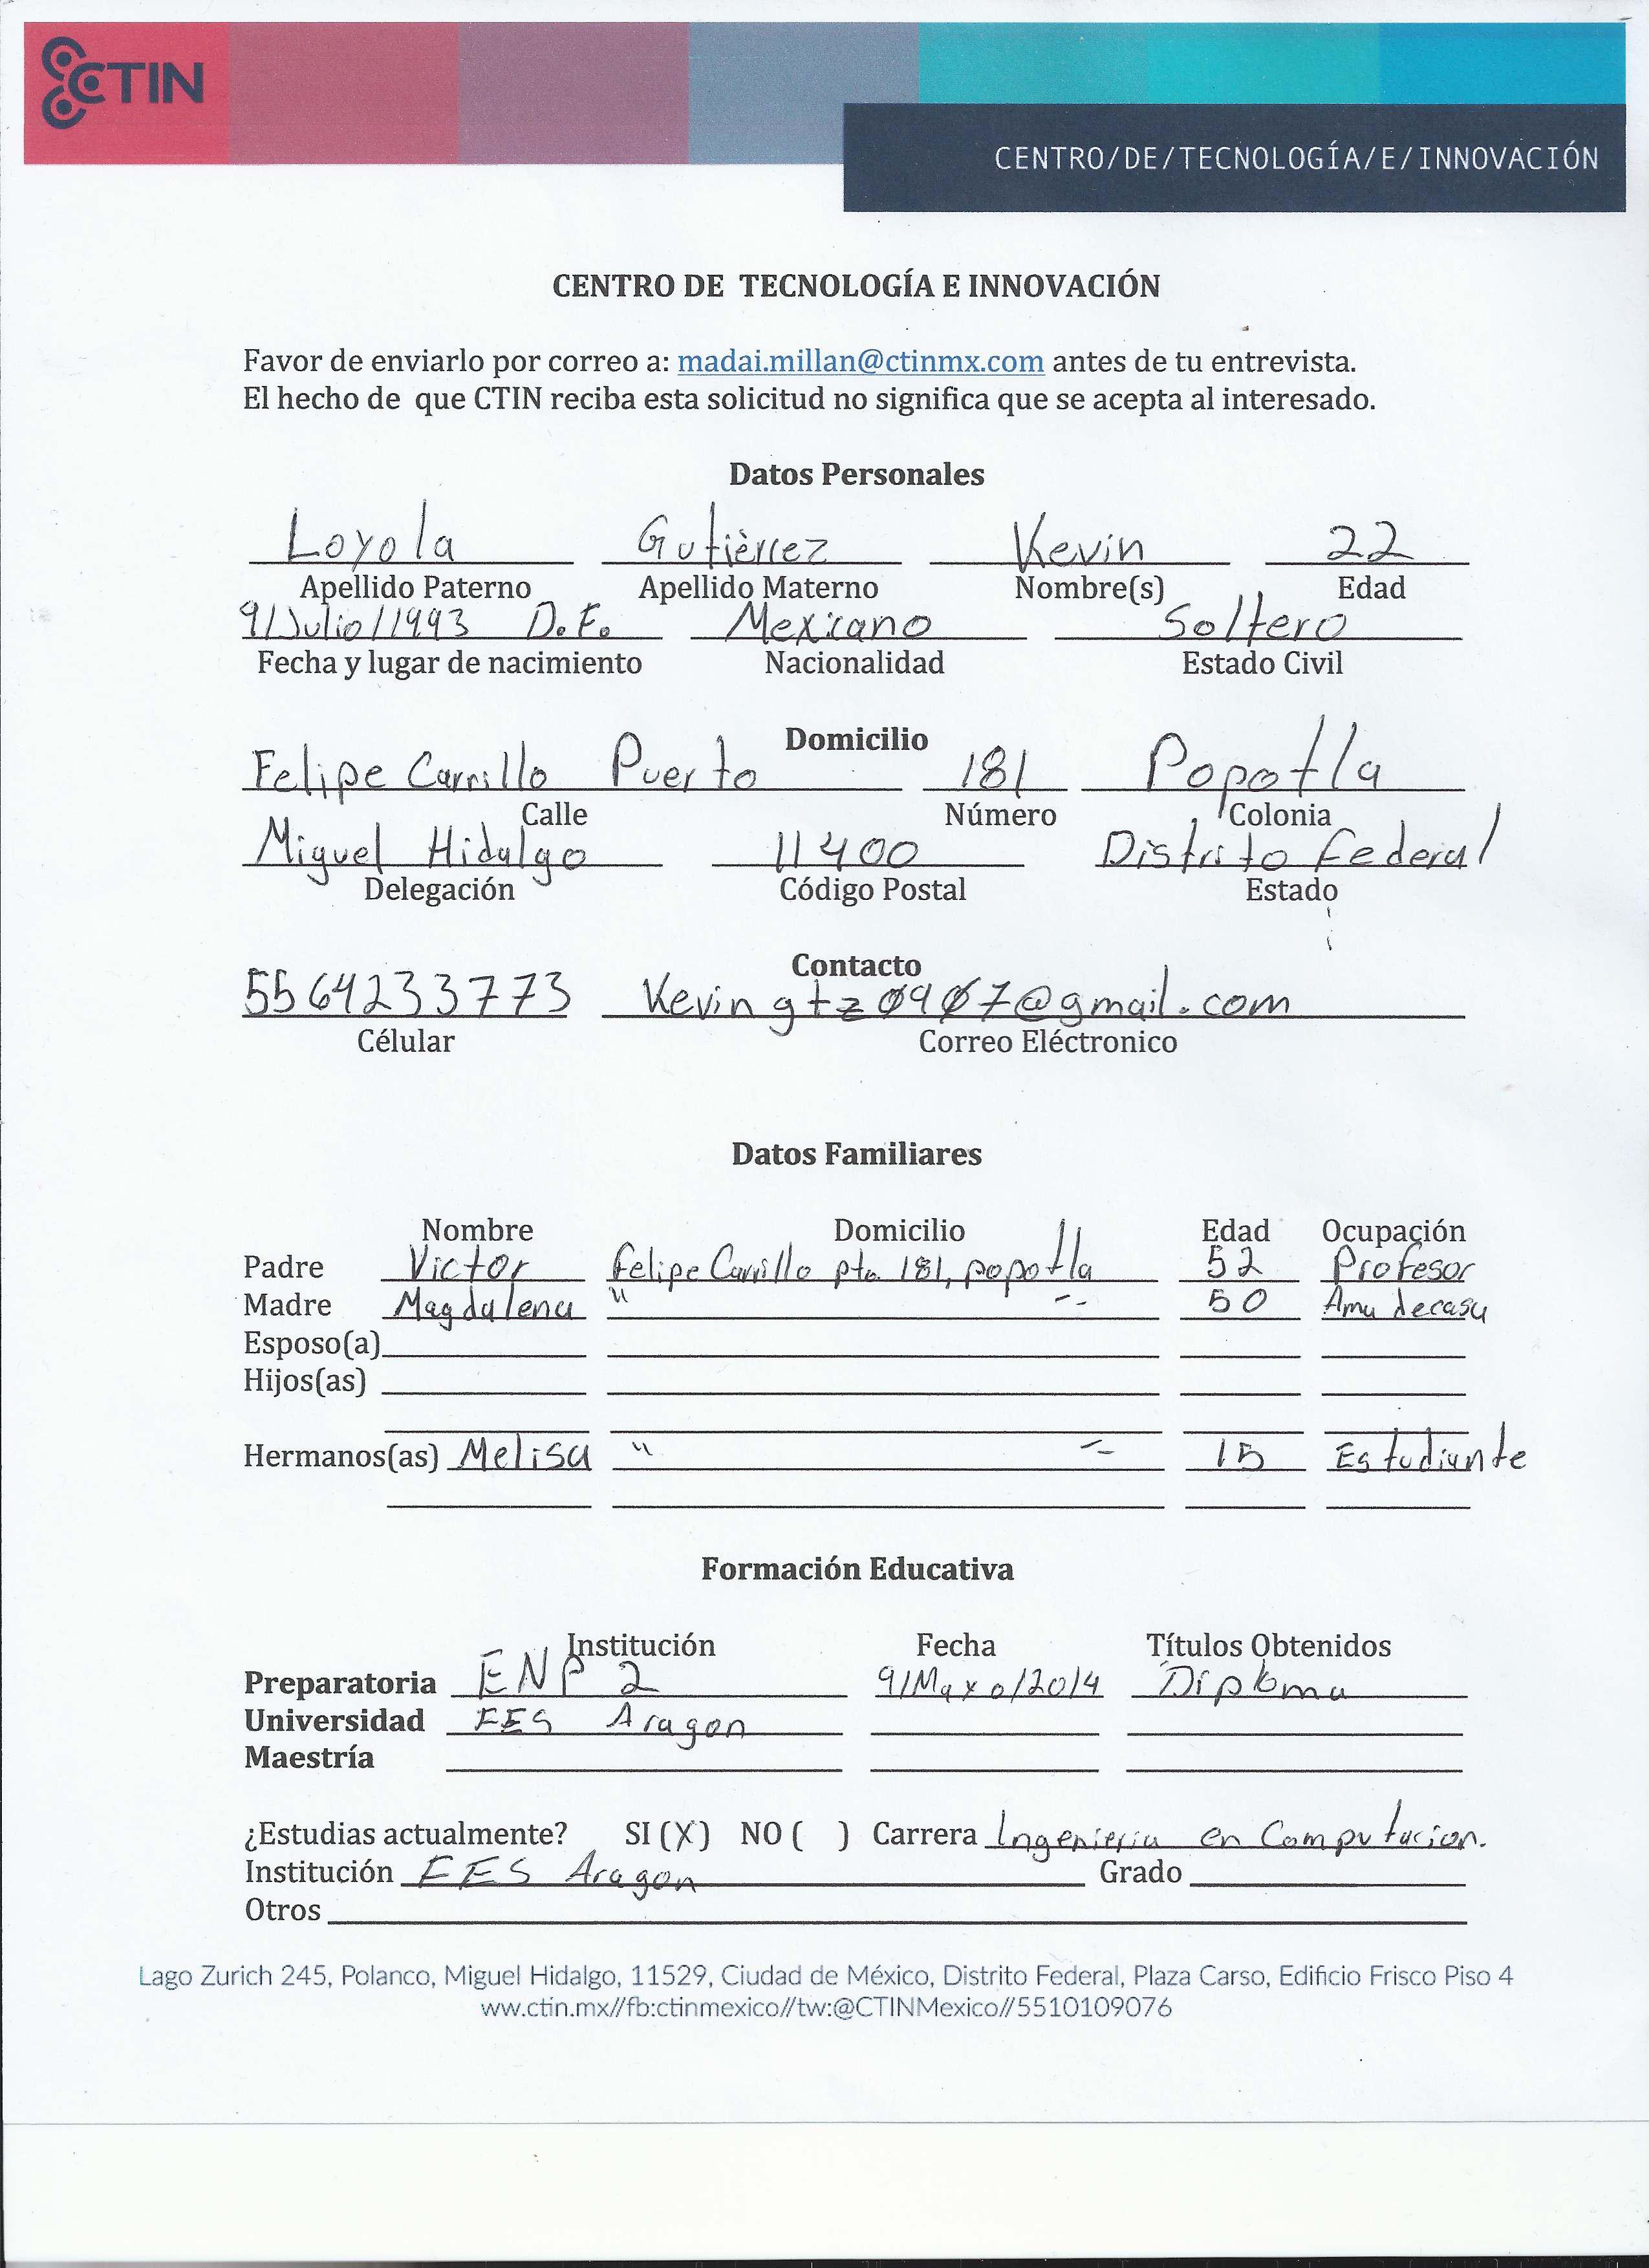 CTIN
CENTRO/DE/TECNOLOGÍA/E/INNOVACIÓN
CENTRO DE TECNOLOGÍA E INNOVACIÓN
Favor de enviarlo por correo a: madai.millan@ctinmx.com antes de tu entrevista.
El hecho de que CTIN reciba esta solicitud no significa que se acepta al interesado.
Datos Personales
Loyola Gutièrrez Kevin 22
Apellido Paterno Apellido Materno Nombre(s) Edad
9/Julio/1993 D.F. Mexicano Soltero
Fecha y lugar de nacimiento Nacionalidad Estado Civil
Domicilio
Felipe Carrillo Puerto 181 Popotla
Calle Número Colonia
Miguel Hidalgo 11400 Distrito Federal
Delegación Código Postal Estado
Contacto
5564233773 Kevingtz0907@gmail.com
Célular Correo Eléctronico
Datos Familiares
Nombre Domicilio Edad Ocupación
Padre Victor Felipe Carrillo pto. 181, popotla 52 Profesor
Madre Magdalena " -- 50 Ama de casa
Esposo(a)
Hijos(as)
Hermanos(as) Melisa " -- 15 Estudiante
Formación Educativa
Institución Fecha Títulos Obtenidos
Preparatoria ENP 2 9/Mayo/2014 Diploma
Universidad FES Aragon
Maestría
¿Estudias actualmente? SI (X) NO ( ) Carrera Ingenieria en Computacion.
Institución FES Aragon Grado
Otros
Lago Zurich 245, Polanco, Miguel Hidalgo, 11529, Ciudad de México, Distrito Federal, Plaza Carso, Edificio Frisco Piso 4
ww.ctin.mx//fb:ctinmexico//tw:@CTINMexico//5510109076